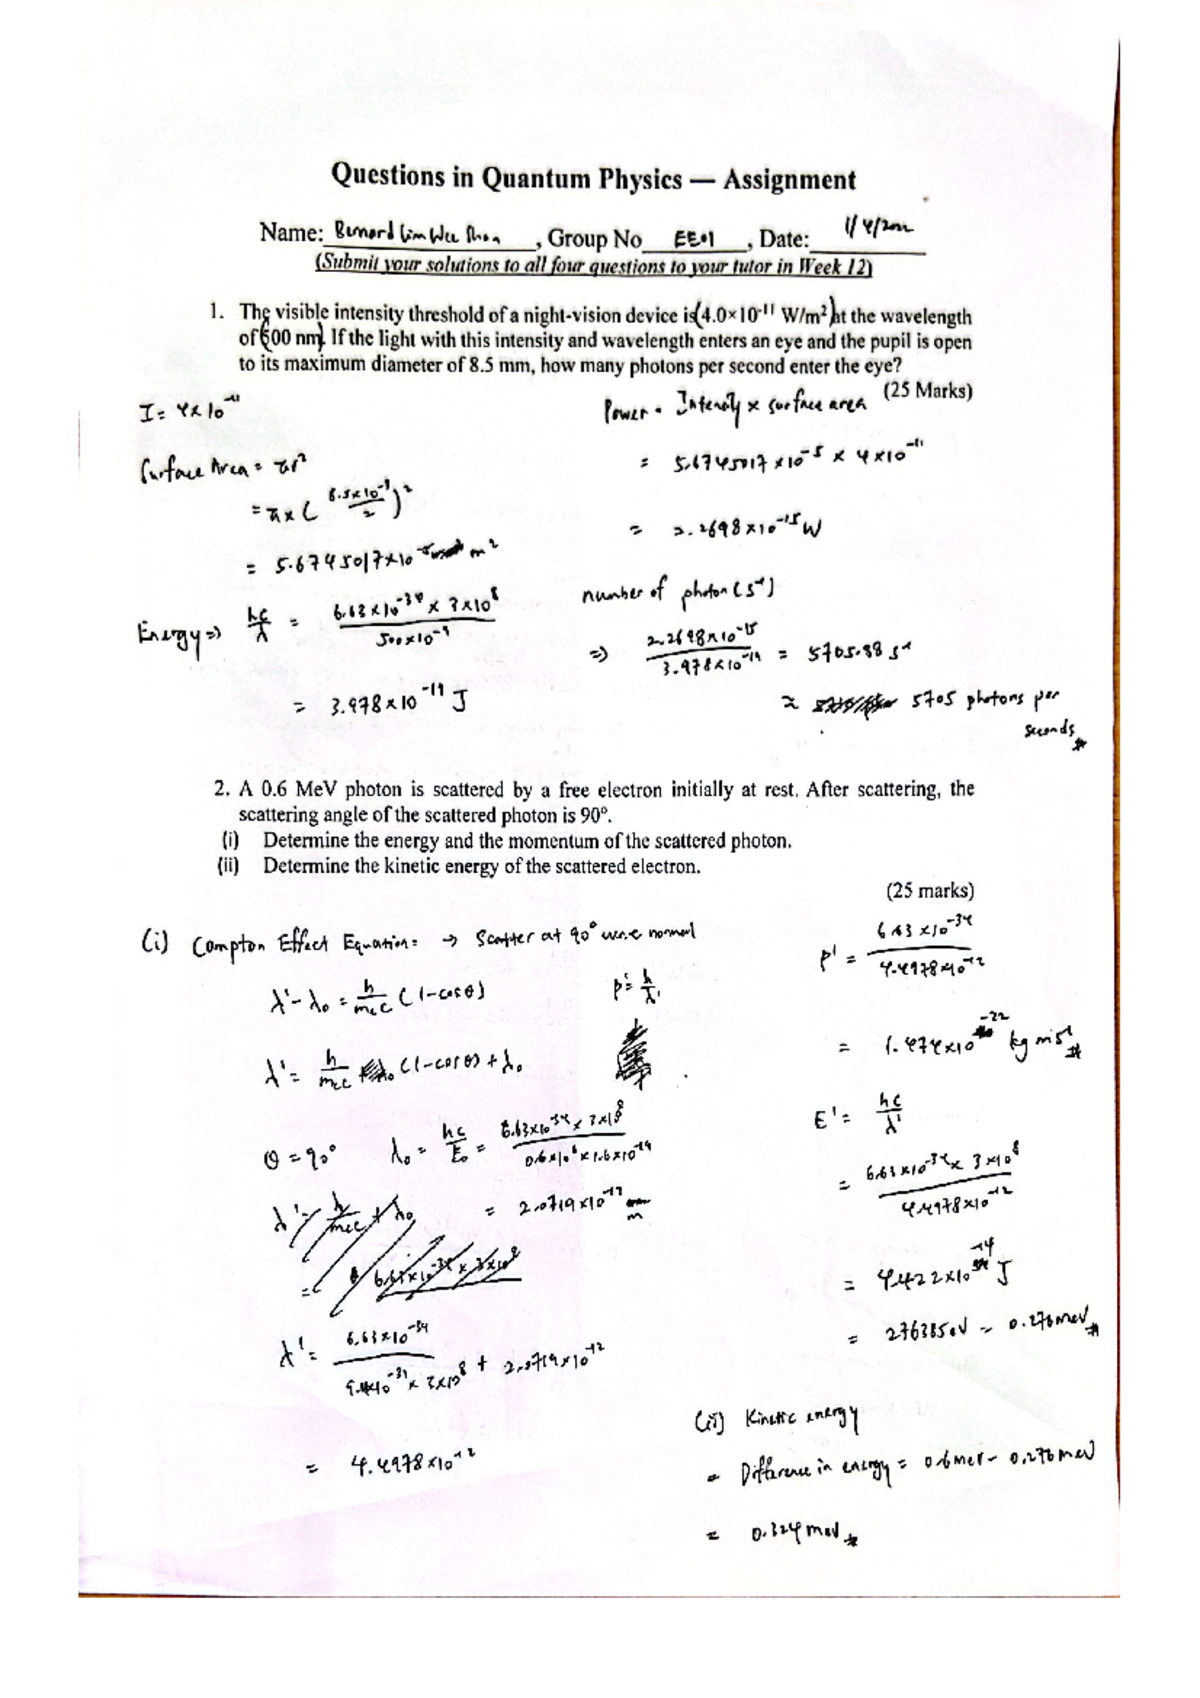 Questions in Quantum Physics — Assignment
Name: Bernard Lim Wee, Group No EE01, Date: 1/4/2022
(Submit your solutions to all four questions to your tutor in Week 12)
1. The visible intensity threshold of a night-vision device is (4.0×10⁻¹¹ W/m²) at the wavelength
of 600 nm. If the light with this intensity and wavelength enters an eye and the pupil is open
to its maximum diameter of 8.5 mm, how many photons per second enter the eye?
(25 Marks)
I = 4×10⁻¹¹
Surface Area = πr²
= π × (8.5×10⁻³/2)²
= 5.6745017×10⁻⁵ m²
Energy => hc/λ = 6.63×10⁻³⁴ × 3×10⁸ / 500×10⁻⁹
= 3.978×10⁻¹⁹ J
Power = Intensity × surface area
= 5.6745017×10⁻⁵ × 4×10⁻¹¹
= 2.2698×10⁻¹⁵ W
number of photon (s⁻¹)
=> 2.2698×10⁻¹⁵ / 3.978×10⁻¹⁹ = 5705.88 s⁻¹
≈ 5705 photons per
seconds #
2. A 0.6 MeV photon is scattered by a free electron initially at rest. After scattering, the
scattering angle of the scattered photon is 90°.
(i) Determine the energy and the momentum of the scattered photon.
(ii) Determine the kinetic energy of the scattered electron.
(25 marks)
(i) Compton Effect Equation: → Scatter at 90° normal
λ' - λ₀ = h/mₑc (1-cosθ)
λ' = h/mₑc (1-cosθ) + λ₀
θ = 90° λ₀ = hc/E₀ = 6.63×10⁻³⁴ × 3×10⁸ / 0.6×10⁶ × 1.6×10⁻¹⁹
= 2.0719×10⁻¹² m
λ' = h/mₑc + λ₀
= 6.63×10⁻³⁴ × 3×10⁸
λ' = 6.63×10⁻³⁴ / 9.1×10⁻³¹ × 3×10⁸ + 2.0719×10⁻¹²
= 4.4978×10⁻¹²
p' = h/λ'
p' = 6.63×10⁻³⁴ / 4.4978×10⁻¹²
= 1.474×10⁻²² kg ms⁻¹ #
E' = hc/λ'
= 6.63×10⁻³⁴ × 3×10⁸ / 4.4978×10⁻¹²
= 4.422×10⁻¹⁴ J
= 276385eV ~ 0.276 meV #
(ii) Kinetic energy
= Difference in energy = 0.6 mev - 0.276 meV
= 0.324 meV #